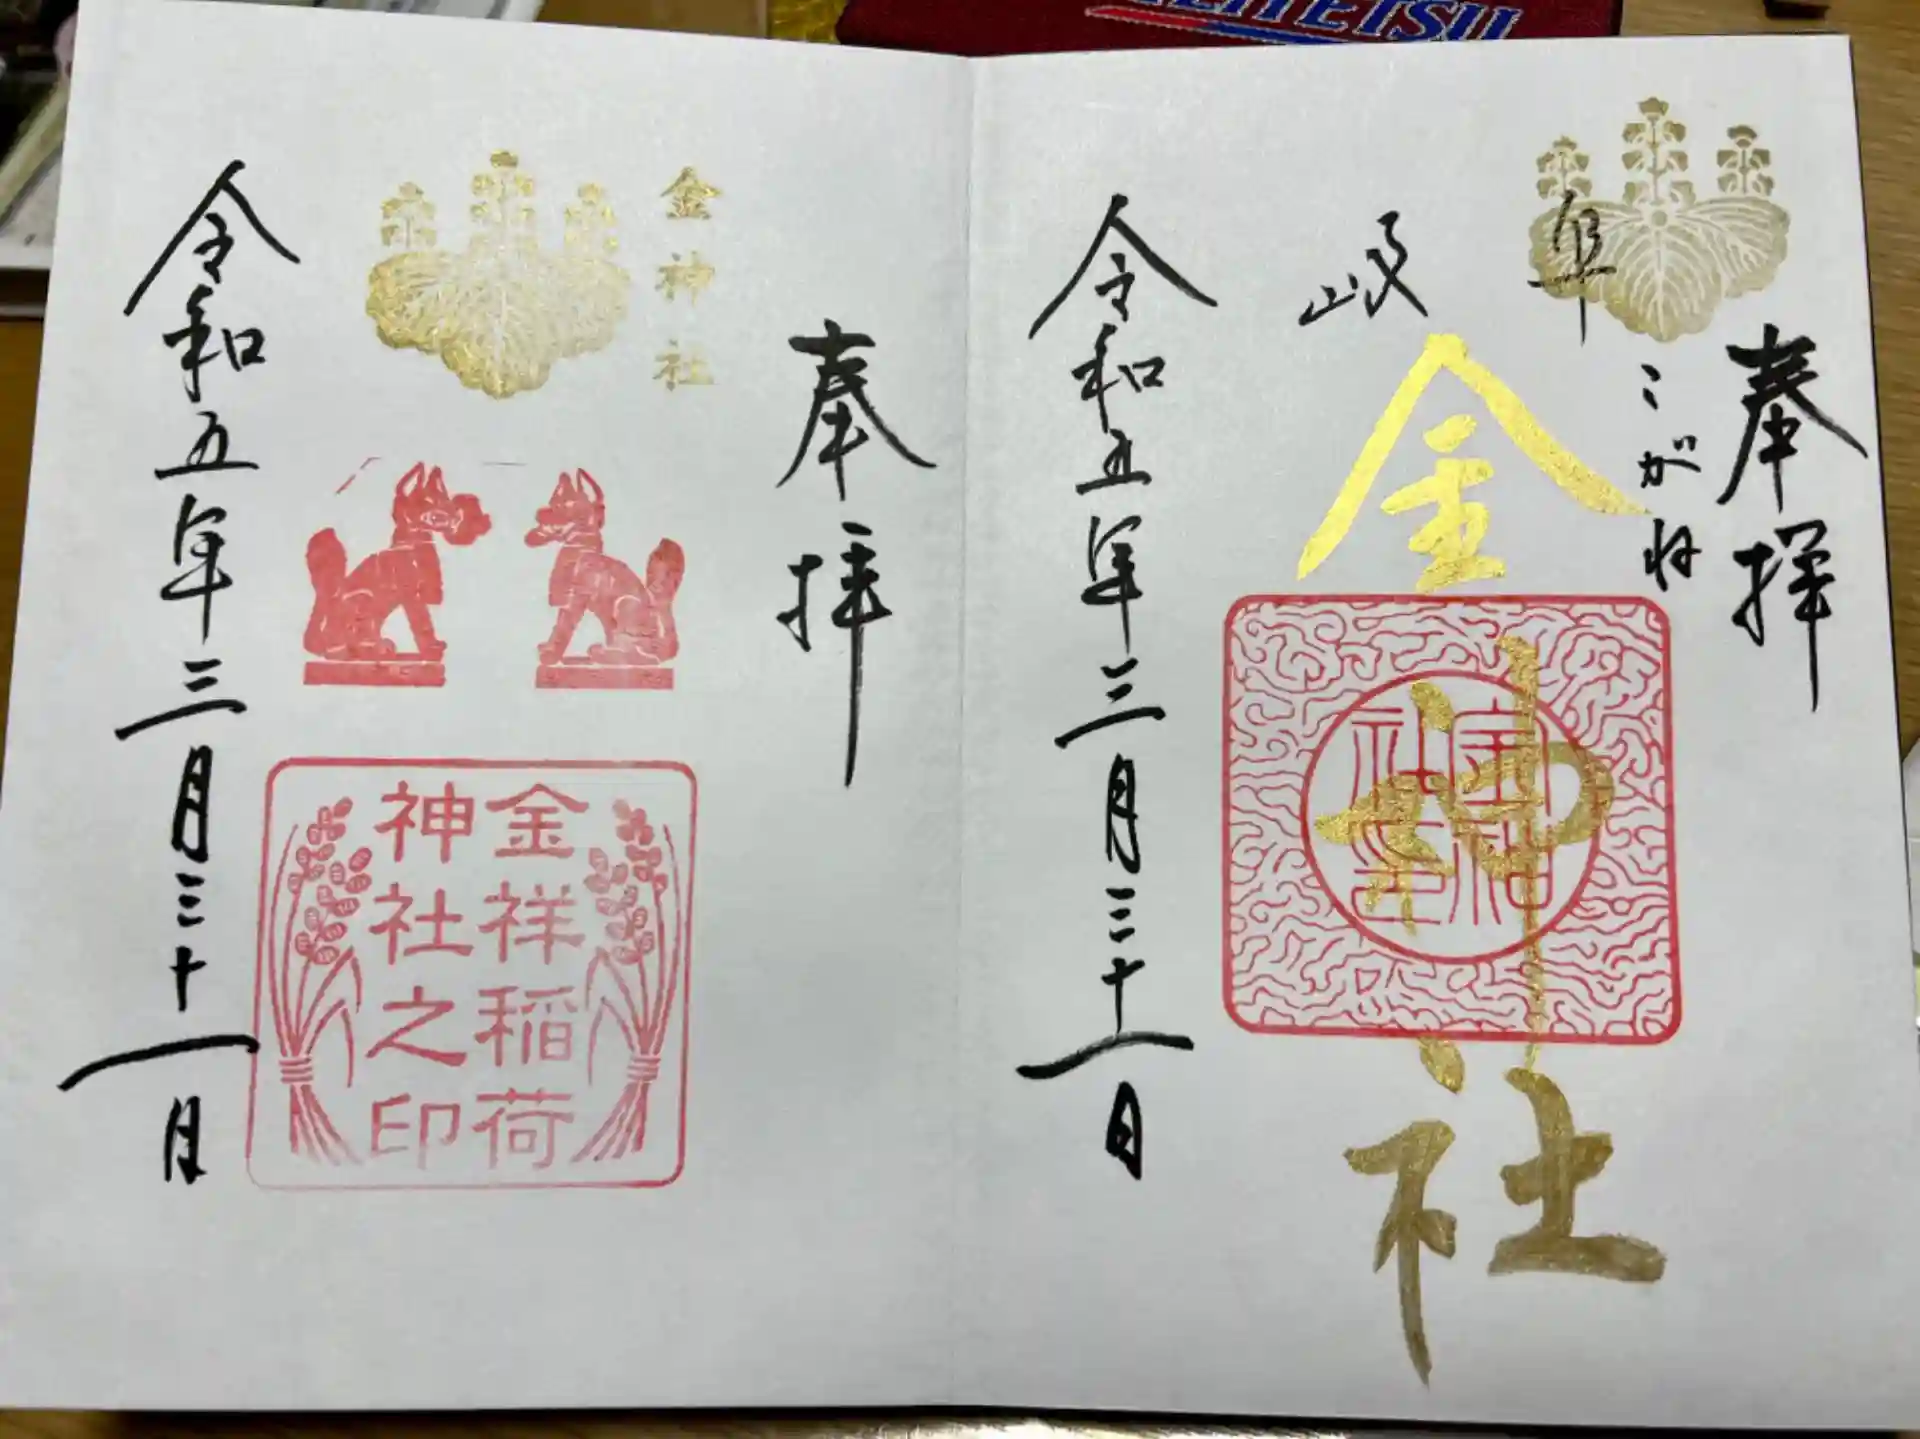 奉拝
岐阜
こがね
金神社
金神社印
令和五年三月三十一日
奉拝
金神社
金祥稲荷
神社之印
令和五年三月三十一日